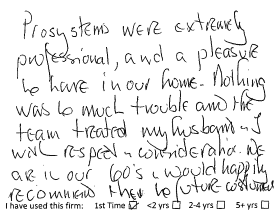 Prosystems were extremely
professional, and a pleasure
to have in our home. Nothing
was to much trouble and the
team treated my husband & I
with respect & consideration. We
are in our 60's & would happily
recommend them to future customers
I have used this firm: 1st Time <2 yrs 2-4 yrs 5+ yrs